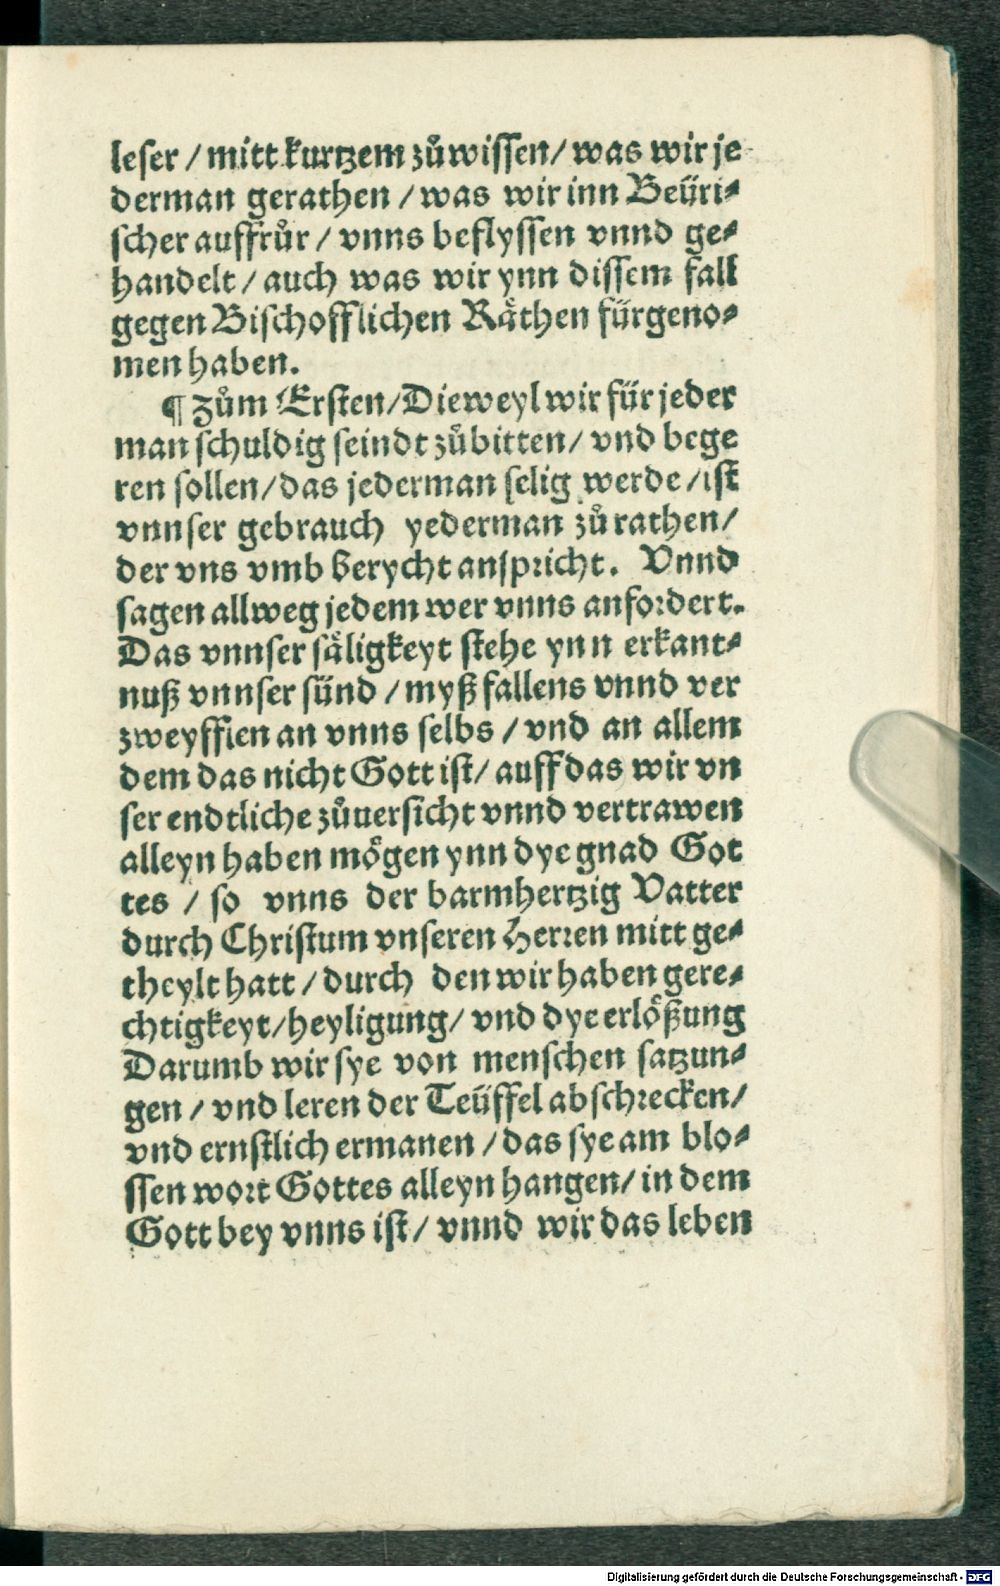 leser / mitt kurtzem zůwissen / was wir je
derman gerathen / was wir inn Beüri⸗
scher auffrůr / vnns beflyssen vnnd ge⸗
handelt / auch was wir ynn dissem fall
gegen Bischofflichen Räthen fürgeno⸗
men haben.
¶ Zům Ersten / Dieweyl wir für jeder
man schuldig seindt zůbitten / vnd bege
ren sollen / das jederman selig werde / ist
vnnser gebrauch yederman zů rathen /
der vns vmb berycht anspricht. Vnnd
sagen allweg jedem wer vnns anfordert.
Das vnnser säligkeyt stehe ynn erkant⸗
nuß vnnser sünd / myßfallens vnnd ver
zweyfflen an vnns selbs / vnd an allem
dem das nicht Gott ist / auff das wir vn
ser endtliche zůuersicht vnnd vertrawen
alleyn haben mögen ynn dye gnad Got
tes / so vnns der barmhertzig Vatter
durch Christum vnseren Herren mitt ge⸗
theylt hatt / durch den wir haben gere⸗
chtigkeyt / heyligung / vnd dye erlößung
Darumb wir sye von menschen satzun⸗
gen / vnd leren der Teüffel abschrecken /
vnd ernstlich ermanen / das sye am blo⸗
ssen wort Gottes alleyn hangen / in dem
Gott bey vnns ist / vnnd wir das leben
Digitalisierung gefördert durch die Deutsche Forschungsgemeinschaft - DFG